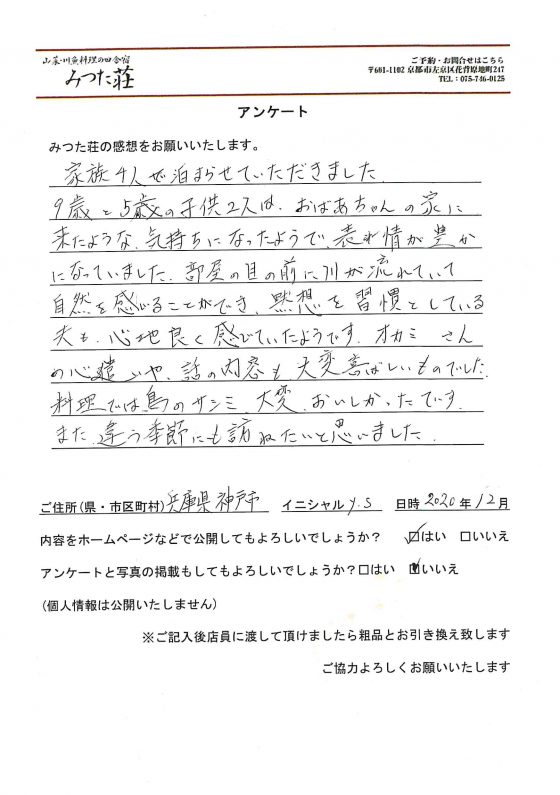 山菜・川魚料理の田舎宿
みつた荘
ご予約・お問合せはこちら
〒601-1102 京都市左京区花背原地町247
TEL：075-746-0125
アンケート
みつた荘の感想をお願いいたします。
家族4人で泊まらせていただきました.
9歳と5歳の子供2人は、おばあちゃんの家に
来たような、気持ちになったようで表れ情が豊か
になっていました. 部屋の目の前に川が流れていて
自然を感じることができ、黙想を習慣としている
夫も、心地良く感じていたようです. オカミさん
の心遣いや、話の内容も大変喜ばしいものでした.
料理では鳥のサシミ 大変、おいしかったです.
また、違う季節にも訪ねたいと思いました.
ご住所(県・市区町村)兵庫県神戸市 イニシャル Y.S 日時 2020年12月
内容をホームページなどで公開してもよろしいでしょうか？ ☑はい □いいえ
アンケートと写真の掲載もしてもよろしいでしょうか？□はい ☑いいえ
(個人情報は公開いたしません)
※ご記入後店員に渡して頂けましたら粗品とお引き換え致します
ご協力よろしくお願いいたします